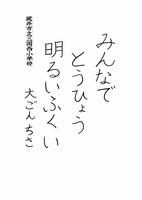 みんなで
とうひょう
明るいふくい
大ごん ちさ
坂井市立三国西小学校